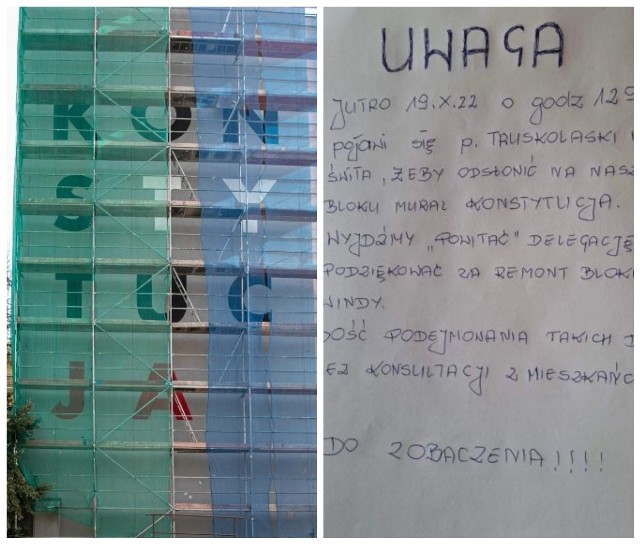 KON
STY
TUC
JA
UWAGA
JUTRO 19.X.22 o godz 12
pojawi się p. TRUSKOLASKI
ŚWITA, ŻEBY ODSŁONIĆ NA
BLOKU MURAL KONSTYTUCJA.
WYJDŹMY „POWITAĆ" DELEGACJĘ
PODZIĘKOWAĆ ZA REMONT
WINDY.
PODEJMOWANIA TAKICH
KONSULTACJI Z
DO ZOBACZENIA!!!!